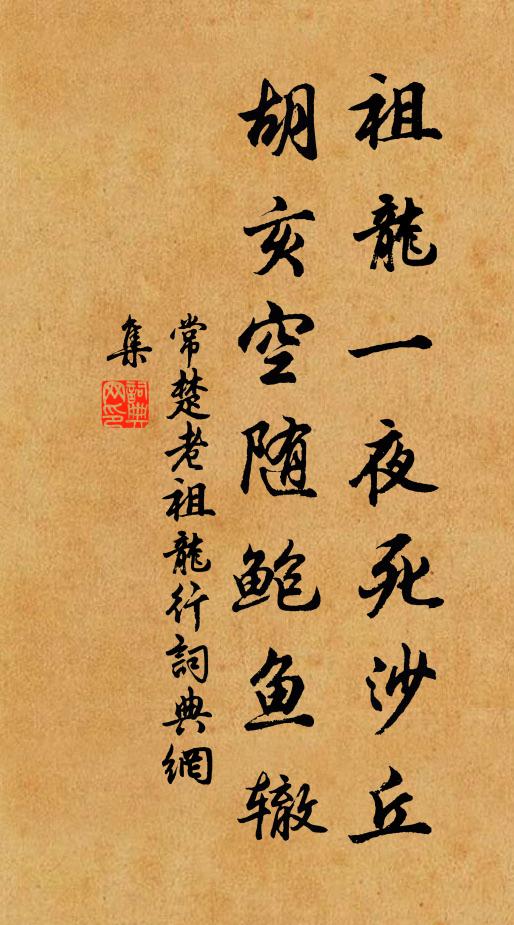 祖龍一夜死沙丘
胡亥空随鲍鱼辙
常楚老祖龍行詞典網
集
詞典网印